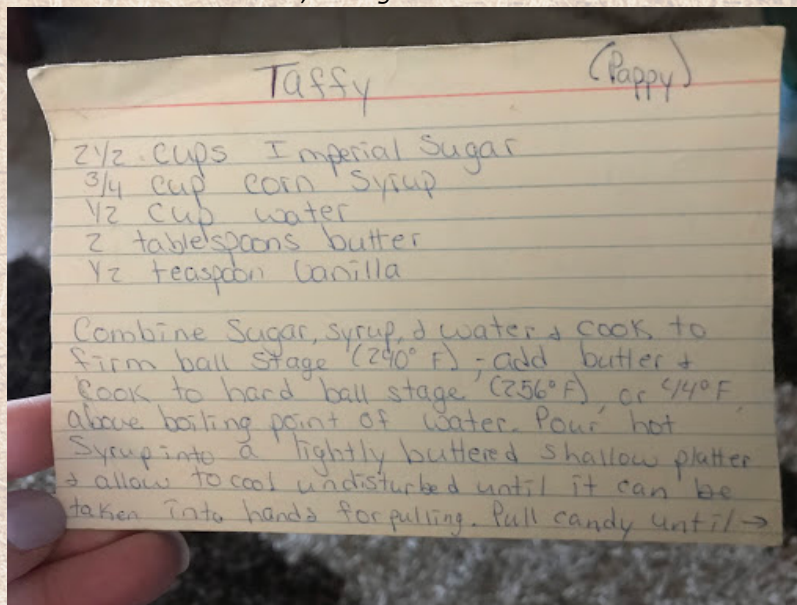 Taffy (Pappy)
2 1/2 cups Imperial Sugar
3/4 cup corn Syrup
1/2 cup water
2 tablespoons butter
1/2 teaspoon Vanilla
Combine Sugar, syrup, & water & cook to
firm ball stage (240° F); add butter &
cook to hard ball stage (256° F), or 44° F
above boiling point of water. Pour hot
Syrup into a lightly buttered shallow platter
& allow to cool undisturbed until it can be
taken into hands for pulling. Pull candy until →